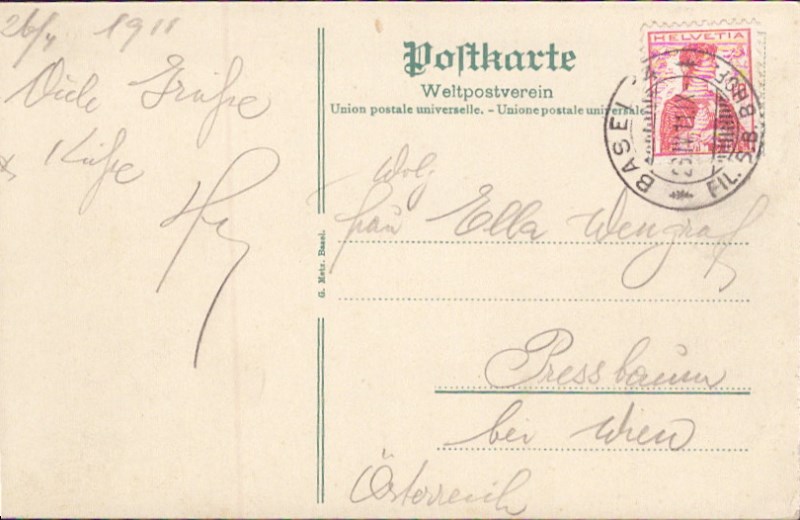 26/4 1911
Viele Grüße
& Küße
Postkarte
Weltpostverein
Union postale universelle. - Unione postale universale
HELVETIA
BASEL
FIL. S.B.B.
G. Metz. Basel.
Wolg
Frau Ella Wengraf
Pressbaum
bei Wien
Österreich